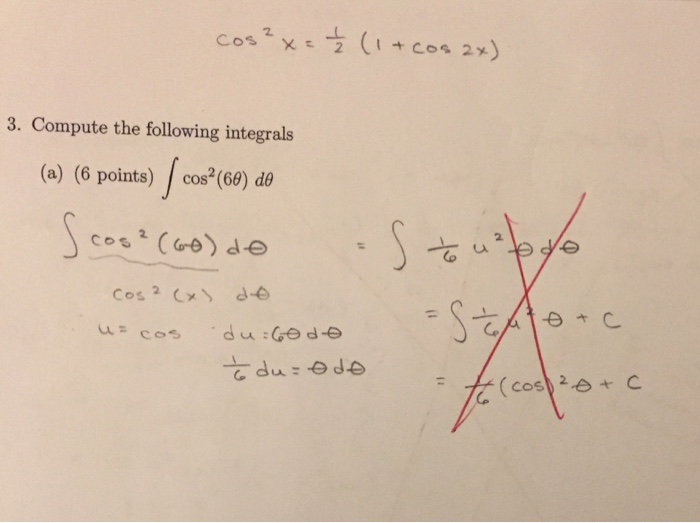 cos² x = 1/2 (1 + cos 2x)
3. Compute the following integrals
(a) (6 points) ∫ cos²(6θ) dθ
∫ cos² (6θ) dθ
cos² (x) dθ
u = cos du = 6θdθ
1/6 du = θdθ
= ∫ 1/6 u² θdθ
= ∫ 1/6 u² θ + C
= 1/6 (cos)² θ + C